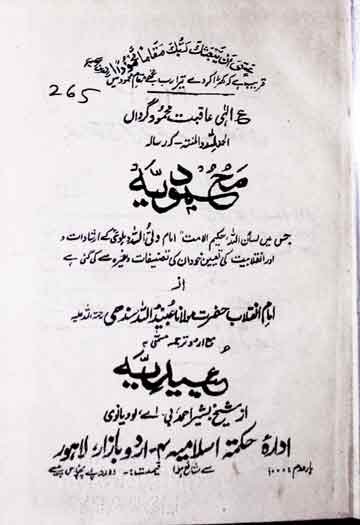 عَسٰى اَنْ يَّبْعَثَكَ رَبُّكَ مَقَامًا مَّحْمُوْدًا
قریب ہے کہ کھڑا کر دے تیرا رب تجھے مقام محمود میں
265
ع۔ الٰہی عاقبت محمود گرداں
کہ رسالہ
محمودیہ
جس میں لسان اللہ، حکیم الامت امام ولی اللہ دہلوی کے ارشادات و
اور انقلابیت کی تعیین خود ان کی تصنیفات وغیرہ سے کی گئی ہے
از
امام انقلاب حضرت مولانا عبید اللہ سندھی رحمۃ اللہ علیہ
کا اردو ترجمہ مسمّٰی بہ
عبیدیہ
از شیخ بشیر احمد بی۔اے لودیانوی
ادارۂ حکمتہ اسلامیہ ۴۔ اردو بازار لاہور
بار دوم ۱۰۰۰ سے شائع ہوا قیمت :- دو روپے پچاس پیسے